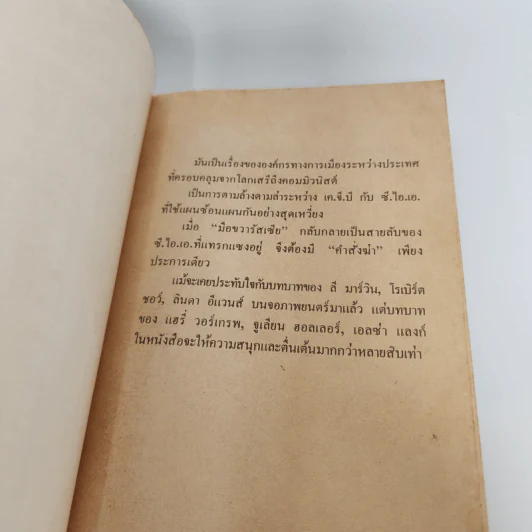 มันเป็นเรื่องขององค์กรทางการเมืองระหว่างประเทศ
ที่ครอบคลุมจากโลกเสรีถึงคอมมิวนิสต์
เป็นการตามล้างตามล่าระหว่าง เค.จี.บี กับ ซี.ไอ.เอ.
ที่ใช้แผนซ้อนแผนกันอย่างสุดเหวี่ยง
เมื่อ “มือขวารัสเซีย” กลับกลายเป็นสายลับของ
ซี.ไอ.เอ.ที่แทรกแซงอยู่ จึงต้องมี “คำสั่งฆ่า” เพียง
ประการเดียว
แม้จะเคยประทับใจกับบทบาทของ ลี มาร์วิน, โรเบิร์ต
ชอว์, ลินดา อีแวนส์ บนจอภาพยนตร์มาแล้ว แต่บทบาท
ของ แฮรี่ วอร์เกรพ, จูเลียน ฮอลเลอร์, เอลซ่า แลงก์
ในหนังสือจะให้ความสนุกและตื่นเต้นมากกว่าหลายสิบเท่า